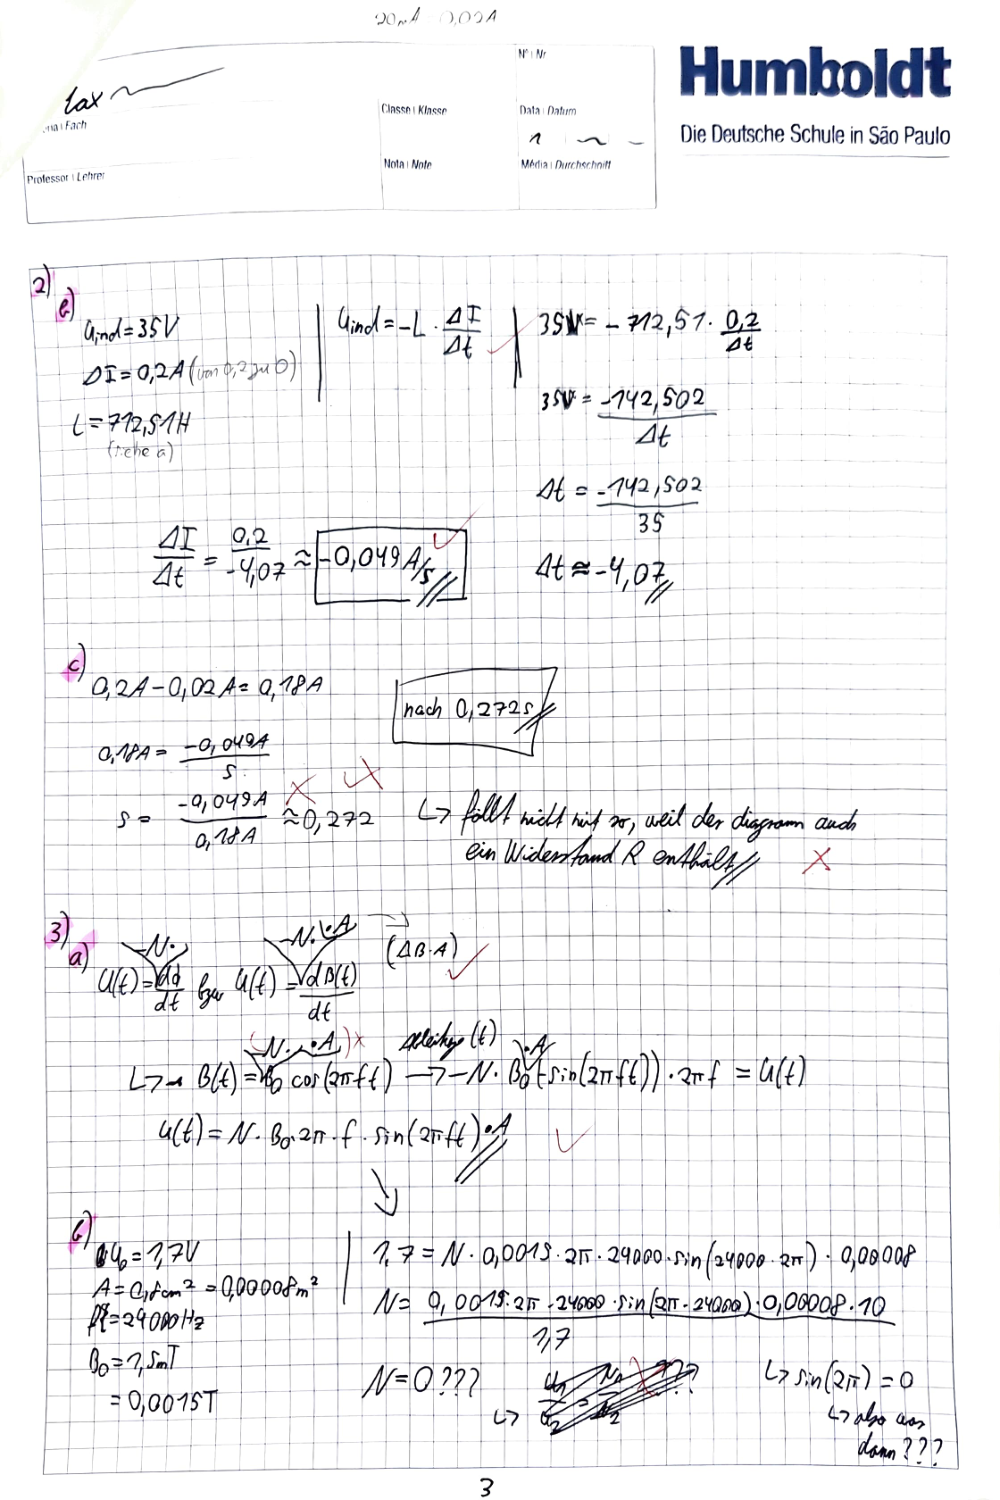 20mA = 0,02A
Nº | Nr
Humboldt
Die Deutsche Schule in São Paulo
Classe | Klasse
Data | Datum
Fach
Nota | Note
Média | Durchschnitt
Professor | Lehrer
2)
b)
Uind = 35V
ΔI = 0,2A (von 0,2 zu 0)
L = 712,51H
(siehe a)
Uind = -L · ΔI/Δt
35V = - 712,51 · 0,2/Δt
35V = -142,502/Δt
Δt = -142,502/35
Δt ≈ -4,07
ΔI/Δt = 0,2/-4,07 ≈ -0,049 A/s
c)
0,2A - 0,02A = 0,18A
nach 0,272s
0,18A = -0,049A/s
s = -0,049A/0,18A ≈ 0,272
↳ fällt nicht mit so, weil der diagramm auch
ein Widerstand R enthält
3)
a)
-N·
-N· ·A
(ΔB·A)
U(t) = dϕ/dt bzw U(t) = dB(t)/dt
(N· ·A)
Ableitung (t)
·A
B(t) = B₀ cos(2πft) → -N · B₀ (-sin(2πft)) · 2πf = U(t)
U(t) = N · B₀ · 2π · f · sin(2πft) · A
b)
U₀ = 1,7V
A = 0,8cm² = 0,00008m²
f = 24000Hz
B₀ = 1,5mT
= 0,0015T
1,7 = N · 0,0015 · 2π · 24000 · sin(24000 · 2π) · 0,00008
N = 0,0015 · 2π · 24000 · sin(2π · 24000) · 0,00008 · 10/1,7
N = 0???
↳ sin(2π) = 0
↳ also was
dann???
3